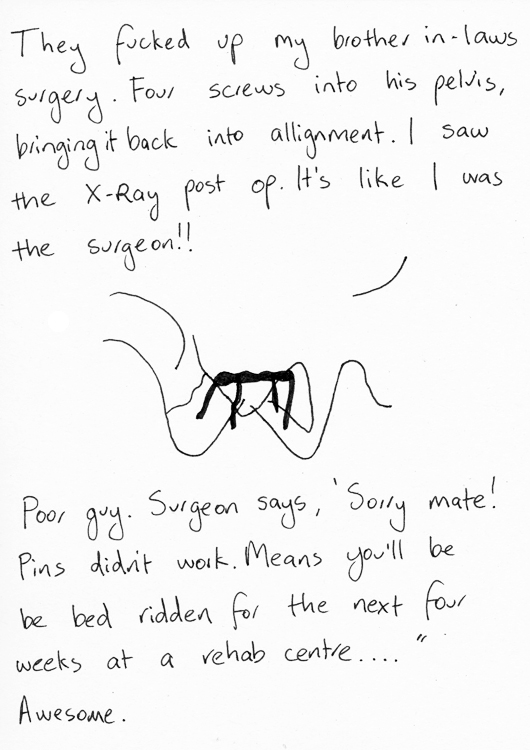 They fucked up my brother in-laws
surgery. Four screws into his pelvis,
bringing it back into allignment. I saw
the X-Ray post op. It's like I was
the surgeon!!
Poor guy. Surgeon says, 'Sorry mate!
Pins didn't work. Means you'll be
be bed ridden for the next four
weeks at a rehab centre.... "
Awesome.